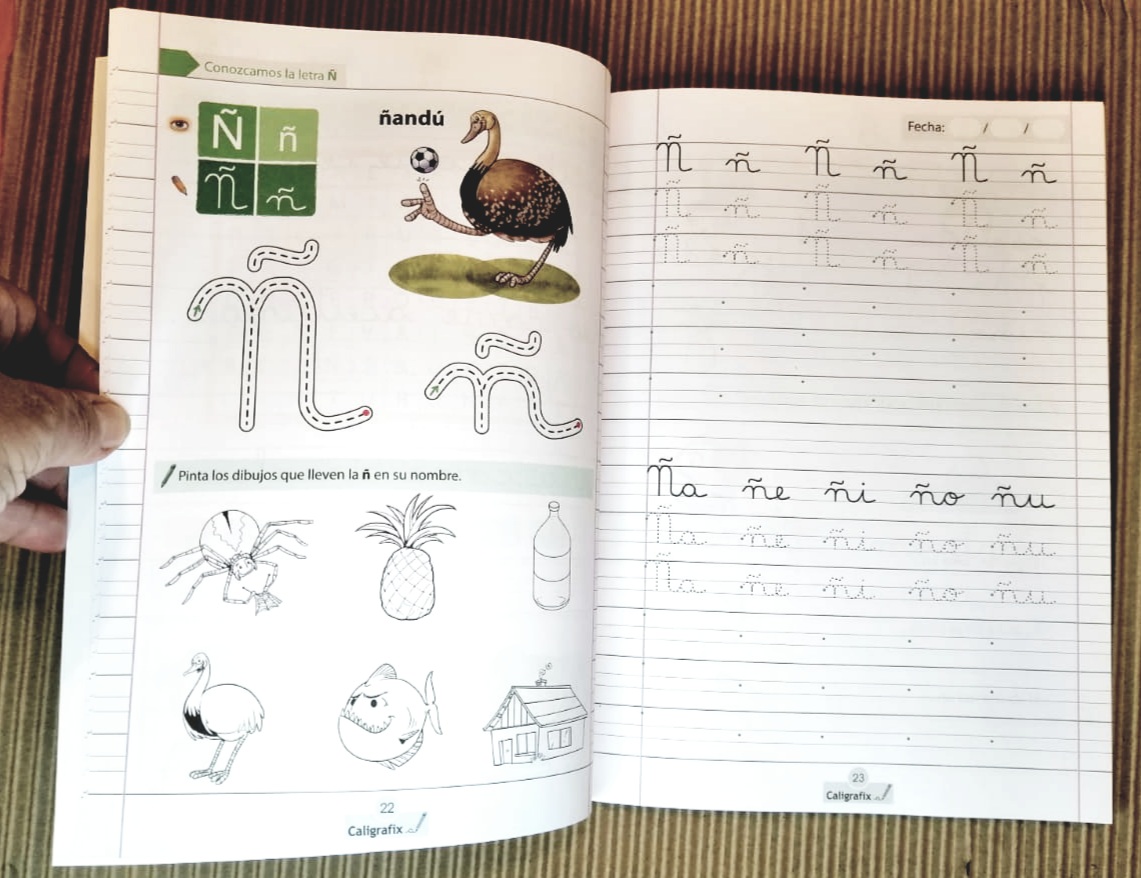 Conozcamos la letra Ñ
Ñ ñ
Ñ ñ
ñandú
Ñ ñ
Pinta los dibujos que lleven la ñ en su nombre.
22
Caligrafix
Fecha: / /
Ñ ñ Ñ ñ Ñ ñ
Ñ ñ Ñ ñ Ñ ñ
Ñ ñ Ñ ñ Ñ ñ
Ña ñe ñi ño ñu
Ña ñe ñi ño ñu
Ña ñe ñi ño ñu
23
Caligrafix